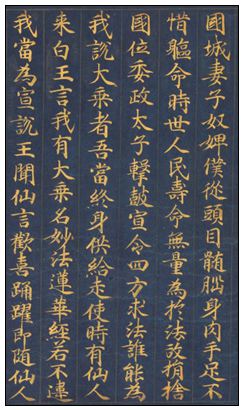 國城妻子奴婢僕從頭目髓腦身肉手足不
惜軀命時世人民壽命無量為於法故捐捨
國位委政太子擊皷宣令四方求法誰能為
我說大乘者吾當終身供給走使時有仙人
来白王言我有大乘名妙法蓮華經若不違
我當為宣說王聞仙言歡喜踊躍即随仙人